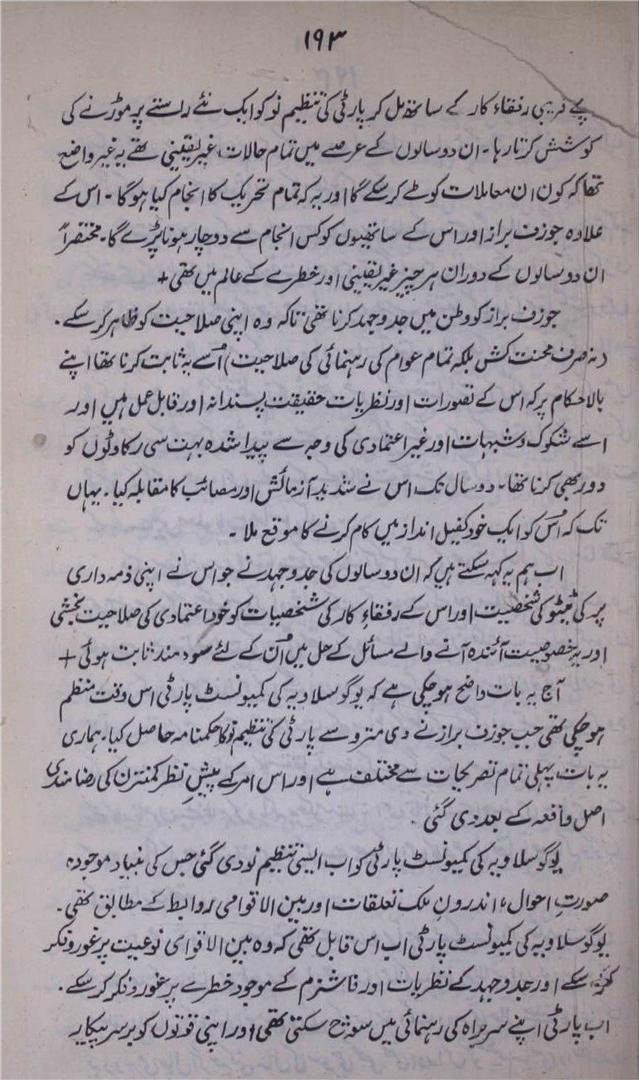 ۱۹۳
قریبی رفقاء کار کے ساتھ مل کر پارٹی کی تنظیم نو کو ایک نئے راستے پر موڑنے کی
کوشش کرتا رہا۔ ان دو سالوں کے عرصے میں تمام حالات غیر یقینی تھے یہ غیر واضح
تھا کہ کون ان معاملات کو طے کر سکے گا اور یہ کہ تمام تحریک کا انجام کیا ہو گا۔ اس کے
علاوہ جوزف براز اور اس کے ساتھیوں کو کس انجام سے دوچار ہونا پڑے گا۔ مختصراً
ان دو سالوں کے دوران ہر چیز غیر یقینی اور خطرے کے عالم میں تھی +
جوزف براز کو وطن میں جدوجہد کرنا تھی تاکہ وہ اپنی صلاحیت کو ظاہر کر سکے۔
(نہ صرف محنت کش بلکہ تمام عوام کی رہنمائی کی صلاحیت) اُسے یہ ثابت کرنا تھا اپنے
بالا حکام پر کہ اس کے تصورات اور نظریات حقیقت پسندانہ اور قابل عمل ہیں اور
اسے شکوک و شبہات اور غیر اعتمادی کی وجہ سے پیدا شدہ بہت سی رکاوٹوں کو
دور بھی کرنا تھا۔ دو سال تک اس نے شدید آزمائش اور مصائب کا مقابلہ کیا۔ یہاں
تک کہ اُس کو ایک خود کفیل انداز میں کام کرنے کا موقع ملا۔
اب ہم یہ کہہ سکتے ہیں کہ ان دو سالوں کی جدوجہد نے جو اس نے اپنی ذمہ داری
پر کی ٹیٹو کی شخصیت اور اس کے رفقاء کار کی شخصیات کو خود اعتمادی کی صلاحیت بخشی
اور یہ خصوصیت آئندہ آنے والے مسائل کے حل میں اُن کے لئے سود مند ثابت ہوئی +
آج یہ بات واضح ہو چکی ہے کہ یوگوسلاویہ کی کمیونسٹ پارٹی اس وقت منظم
ہو چکی تھی جب جوزف براز نے دی متروسے پارٹی کی تنظیم نو کا حکمنامہ حاصل کیا۔ ہماری
یہ بات پہلی تمام تصریحات سے مختلف ہے اور اس امر کے پیش نظر کمنترن کی رضا مندی
اصل واقعہ کے بعد دی گئی۔
یوگوسلاویہ کی کمیونسٹ پارٹی کو اب ایسی تنظیم نو دی گئی جس کی بنیاد موجودہ
صورت احوال، اندرون ملک تعلقات اور بین الاقوامی روابط کے مطابق تھی۔
یوگوسلاویہ کی کمیونسٹ پارٹی اب اس قابل تھی کہ وہ بین الاقوامی نوعیت پر غور و فکر
کر سکے اور جدوجہد کے نظریات اور فاشزم کے موجود خطرے پر غور و فکر کر سکے۔
اب پارٹی اپنے سربراہ کی رہنمائی میں سوچ سکتی تھی اور اپنی قوتوں کو برسرپیکار